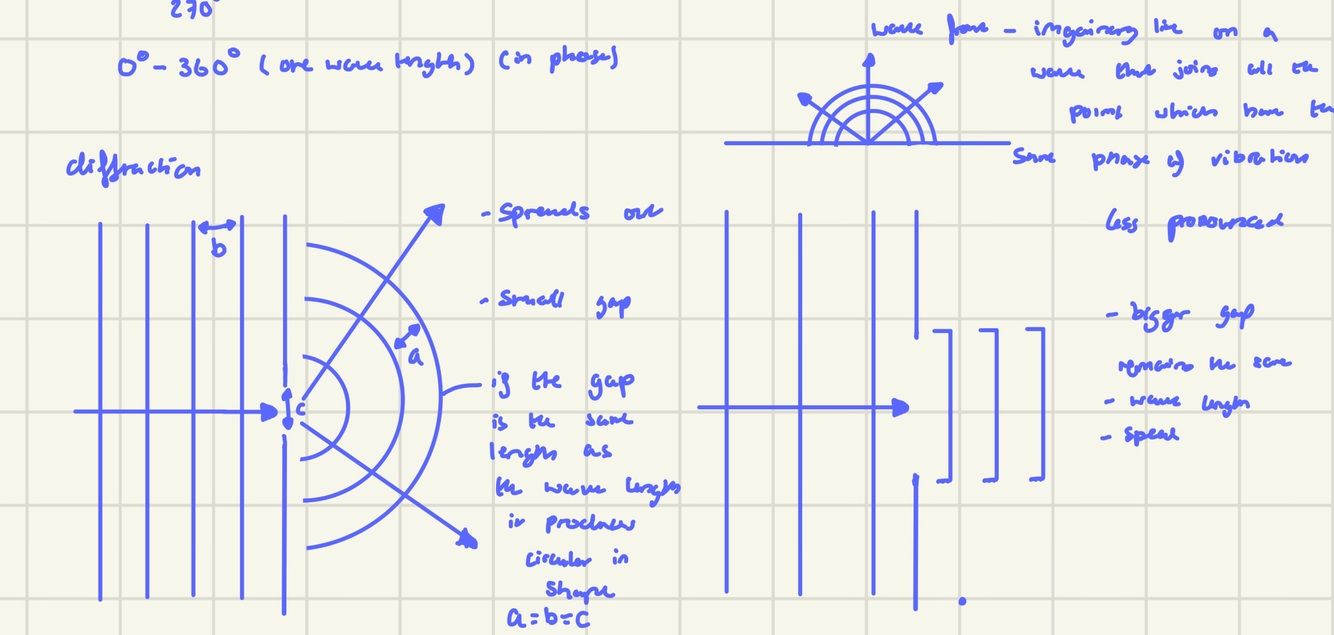 270°
0° - 360° (one wave length) (in phase)
wave front - imgainary line on a
wave that joins all the
points which have the
Same phase of vibration
diffraction
b
- Spreads out
- Small gap
a
c
if the gap
is the same
length as
the wave length
it produces
circular in
Shape
a=b=c
less pronounced
- bigger gap
remains the same
- wave length
- speed